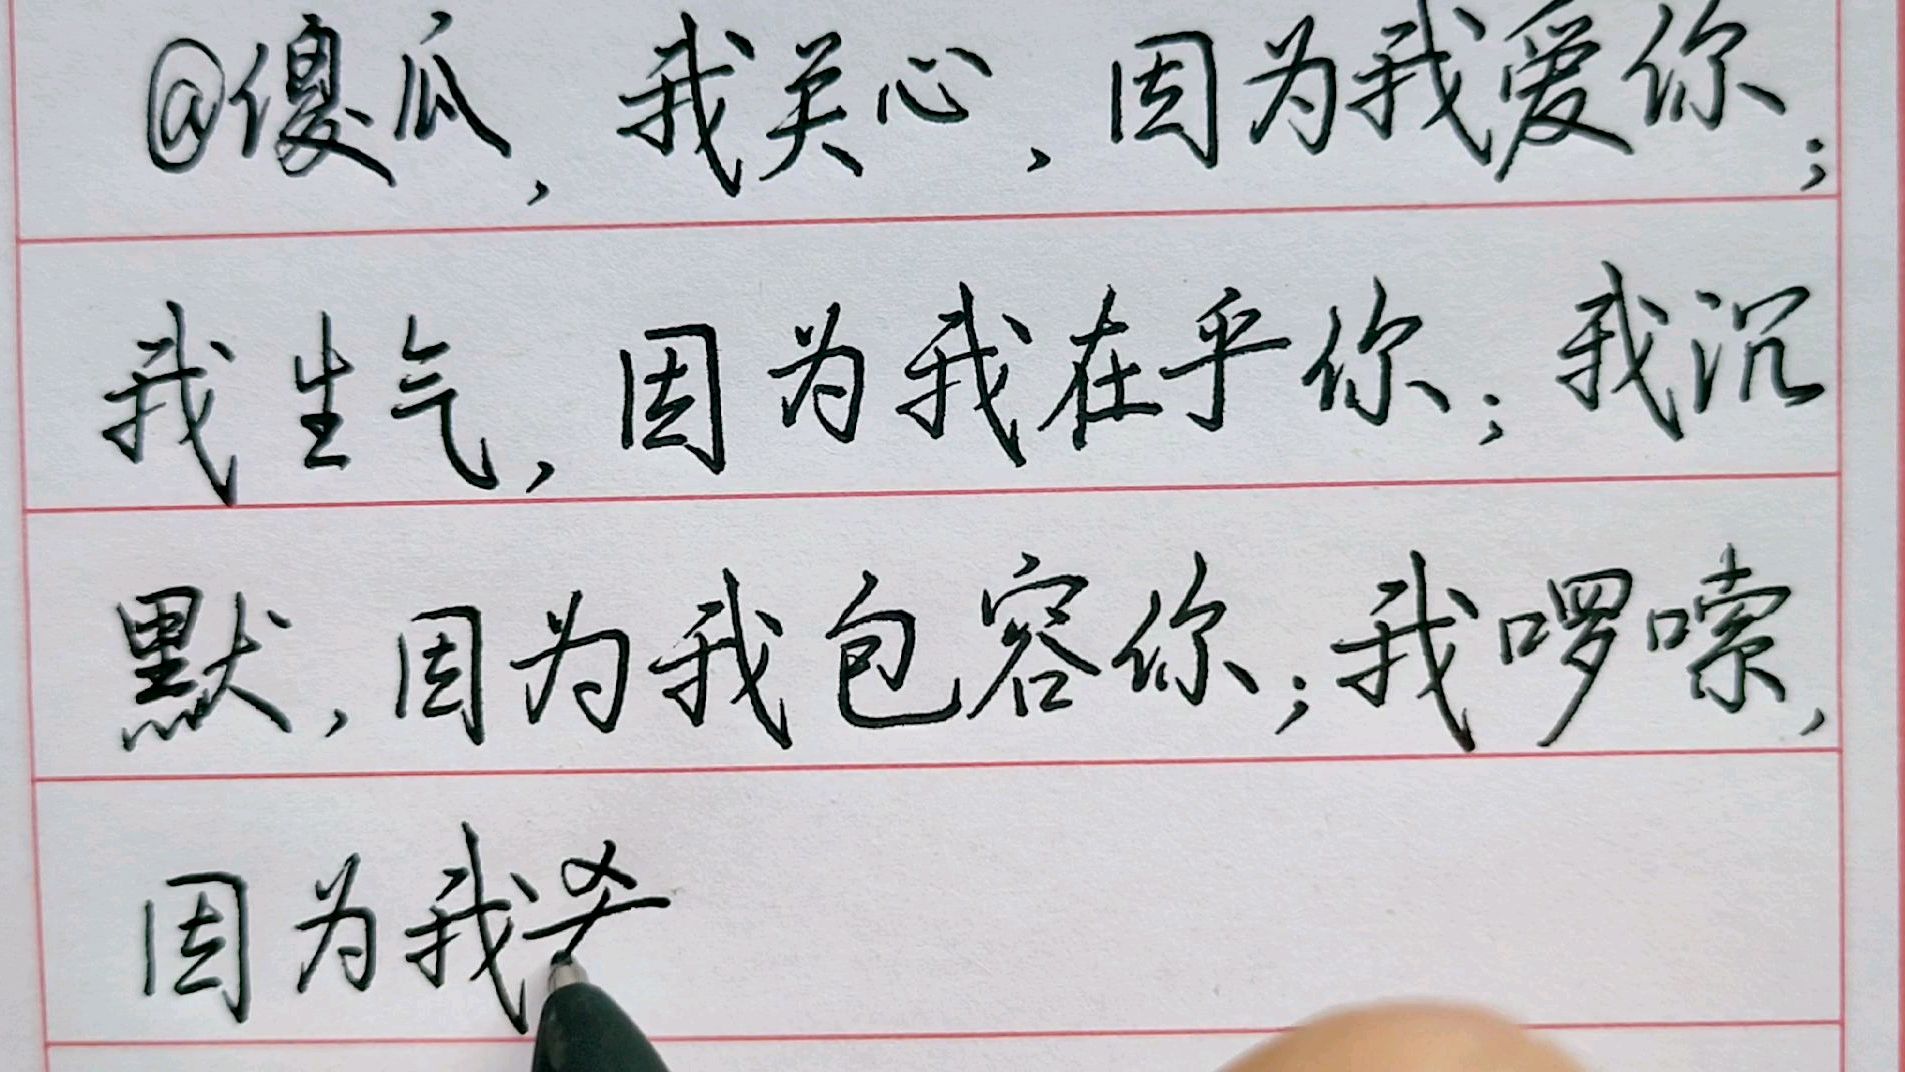 @傻瓜,我关心,因为我爱你;
我生气,因为我在乎你;我沉
默,因为我包容你;我啰嗦,
因为我